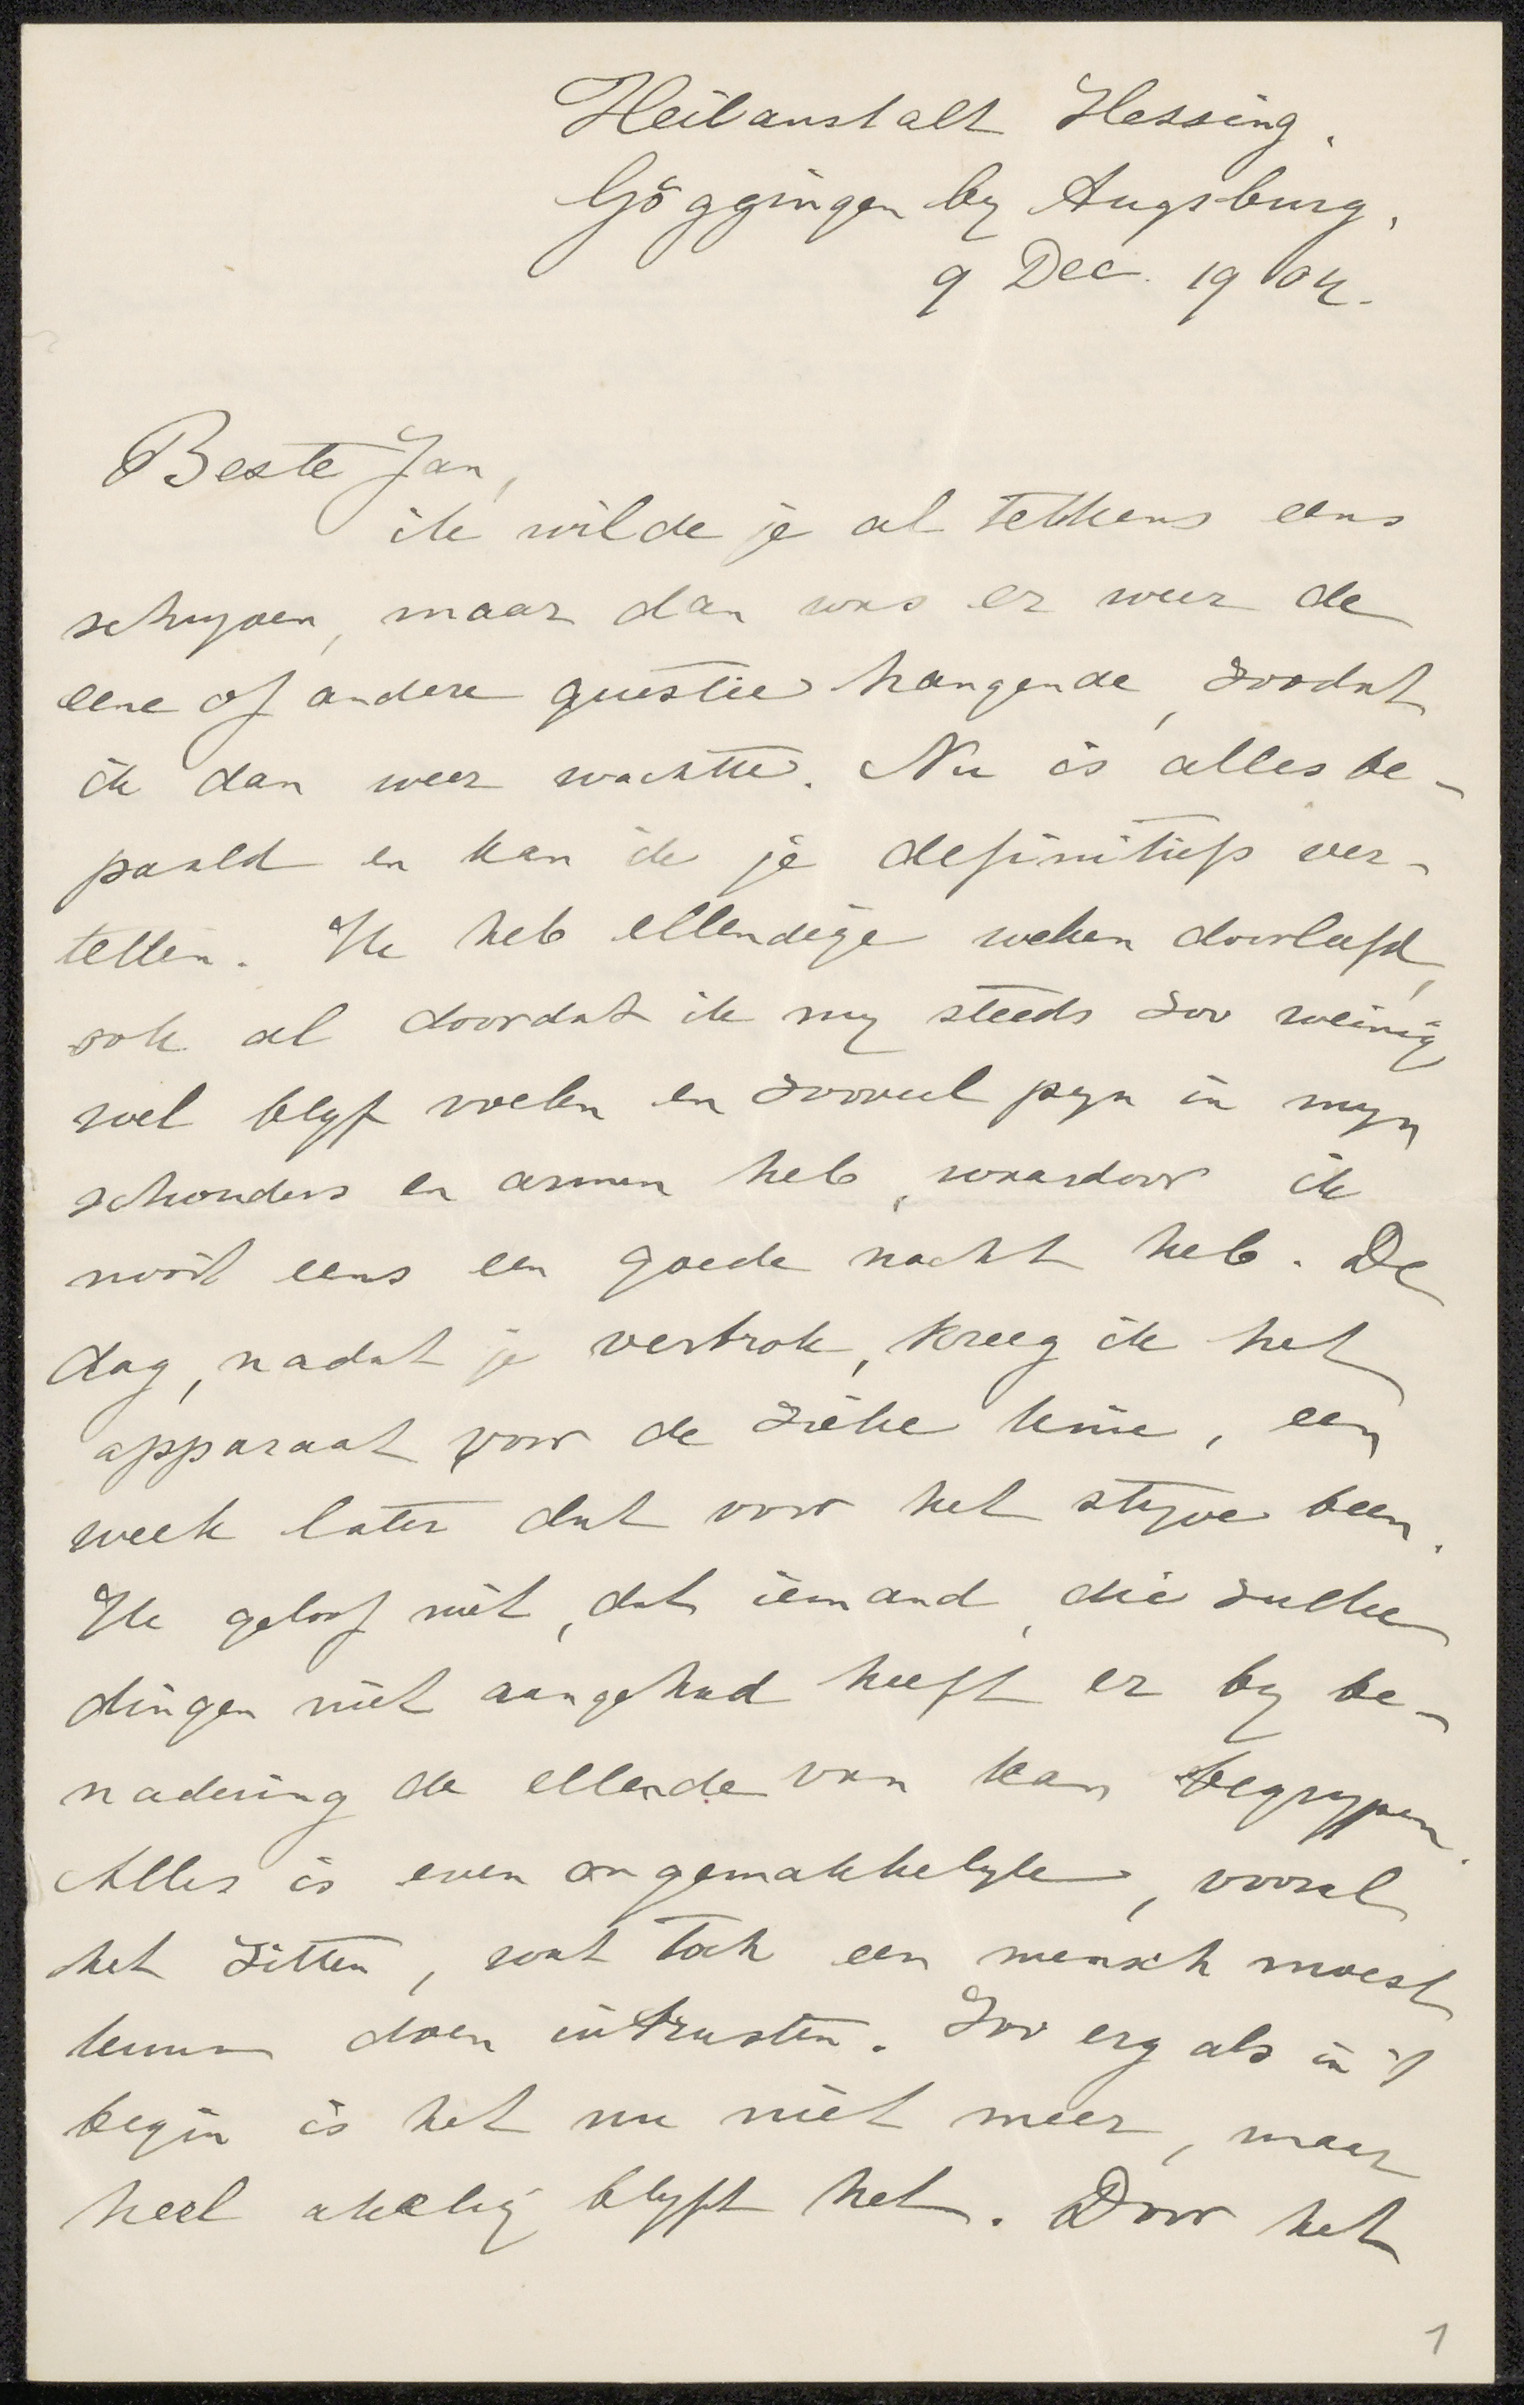 Heilanstalt Hessing,
Göggingen by Augsburg,
9 Dec. 1904.
Beste Jan,
ik wilde je al telkens eens
schryven, maar dan was er weer de
eene of andere questie hangende, zoodat
ik dan weer wachtte. Nu is alles be-
paald en kan ik je definitiefs ver-
tellen. Ik heb ellendige weken doorleefd,
ook al doordat ik my steeds zoo weinig
wel blyf voelen en zooveel pyn in myn
schouders en armen heb, waardoor ik
nooit eens een goede nacht heb. De
dag, nadat je vertrok, kreeg ik het
apparaat voor de zieke knie, een
week later dat voor het styve been.
Ik geloof niet, dat iemand, die zulke
dingen niet aangehad heeft er by be-
nadering de ellende van kan begrypen.
Alles is even ongemakkelyk, vooral
het zitten, wat toch een mensch moest
kunnen doen uitrusten. Zoo erg als in 't
begin is het nu niet meer, maar
heel akelig blyft het. Door het
1